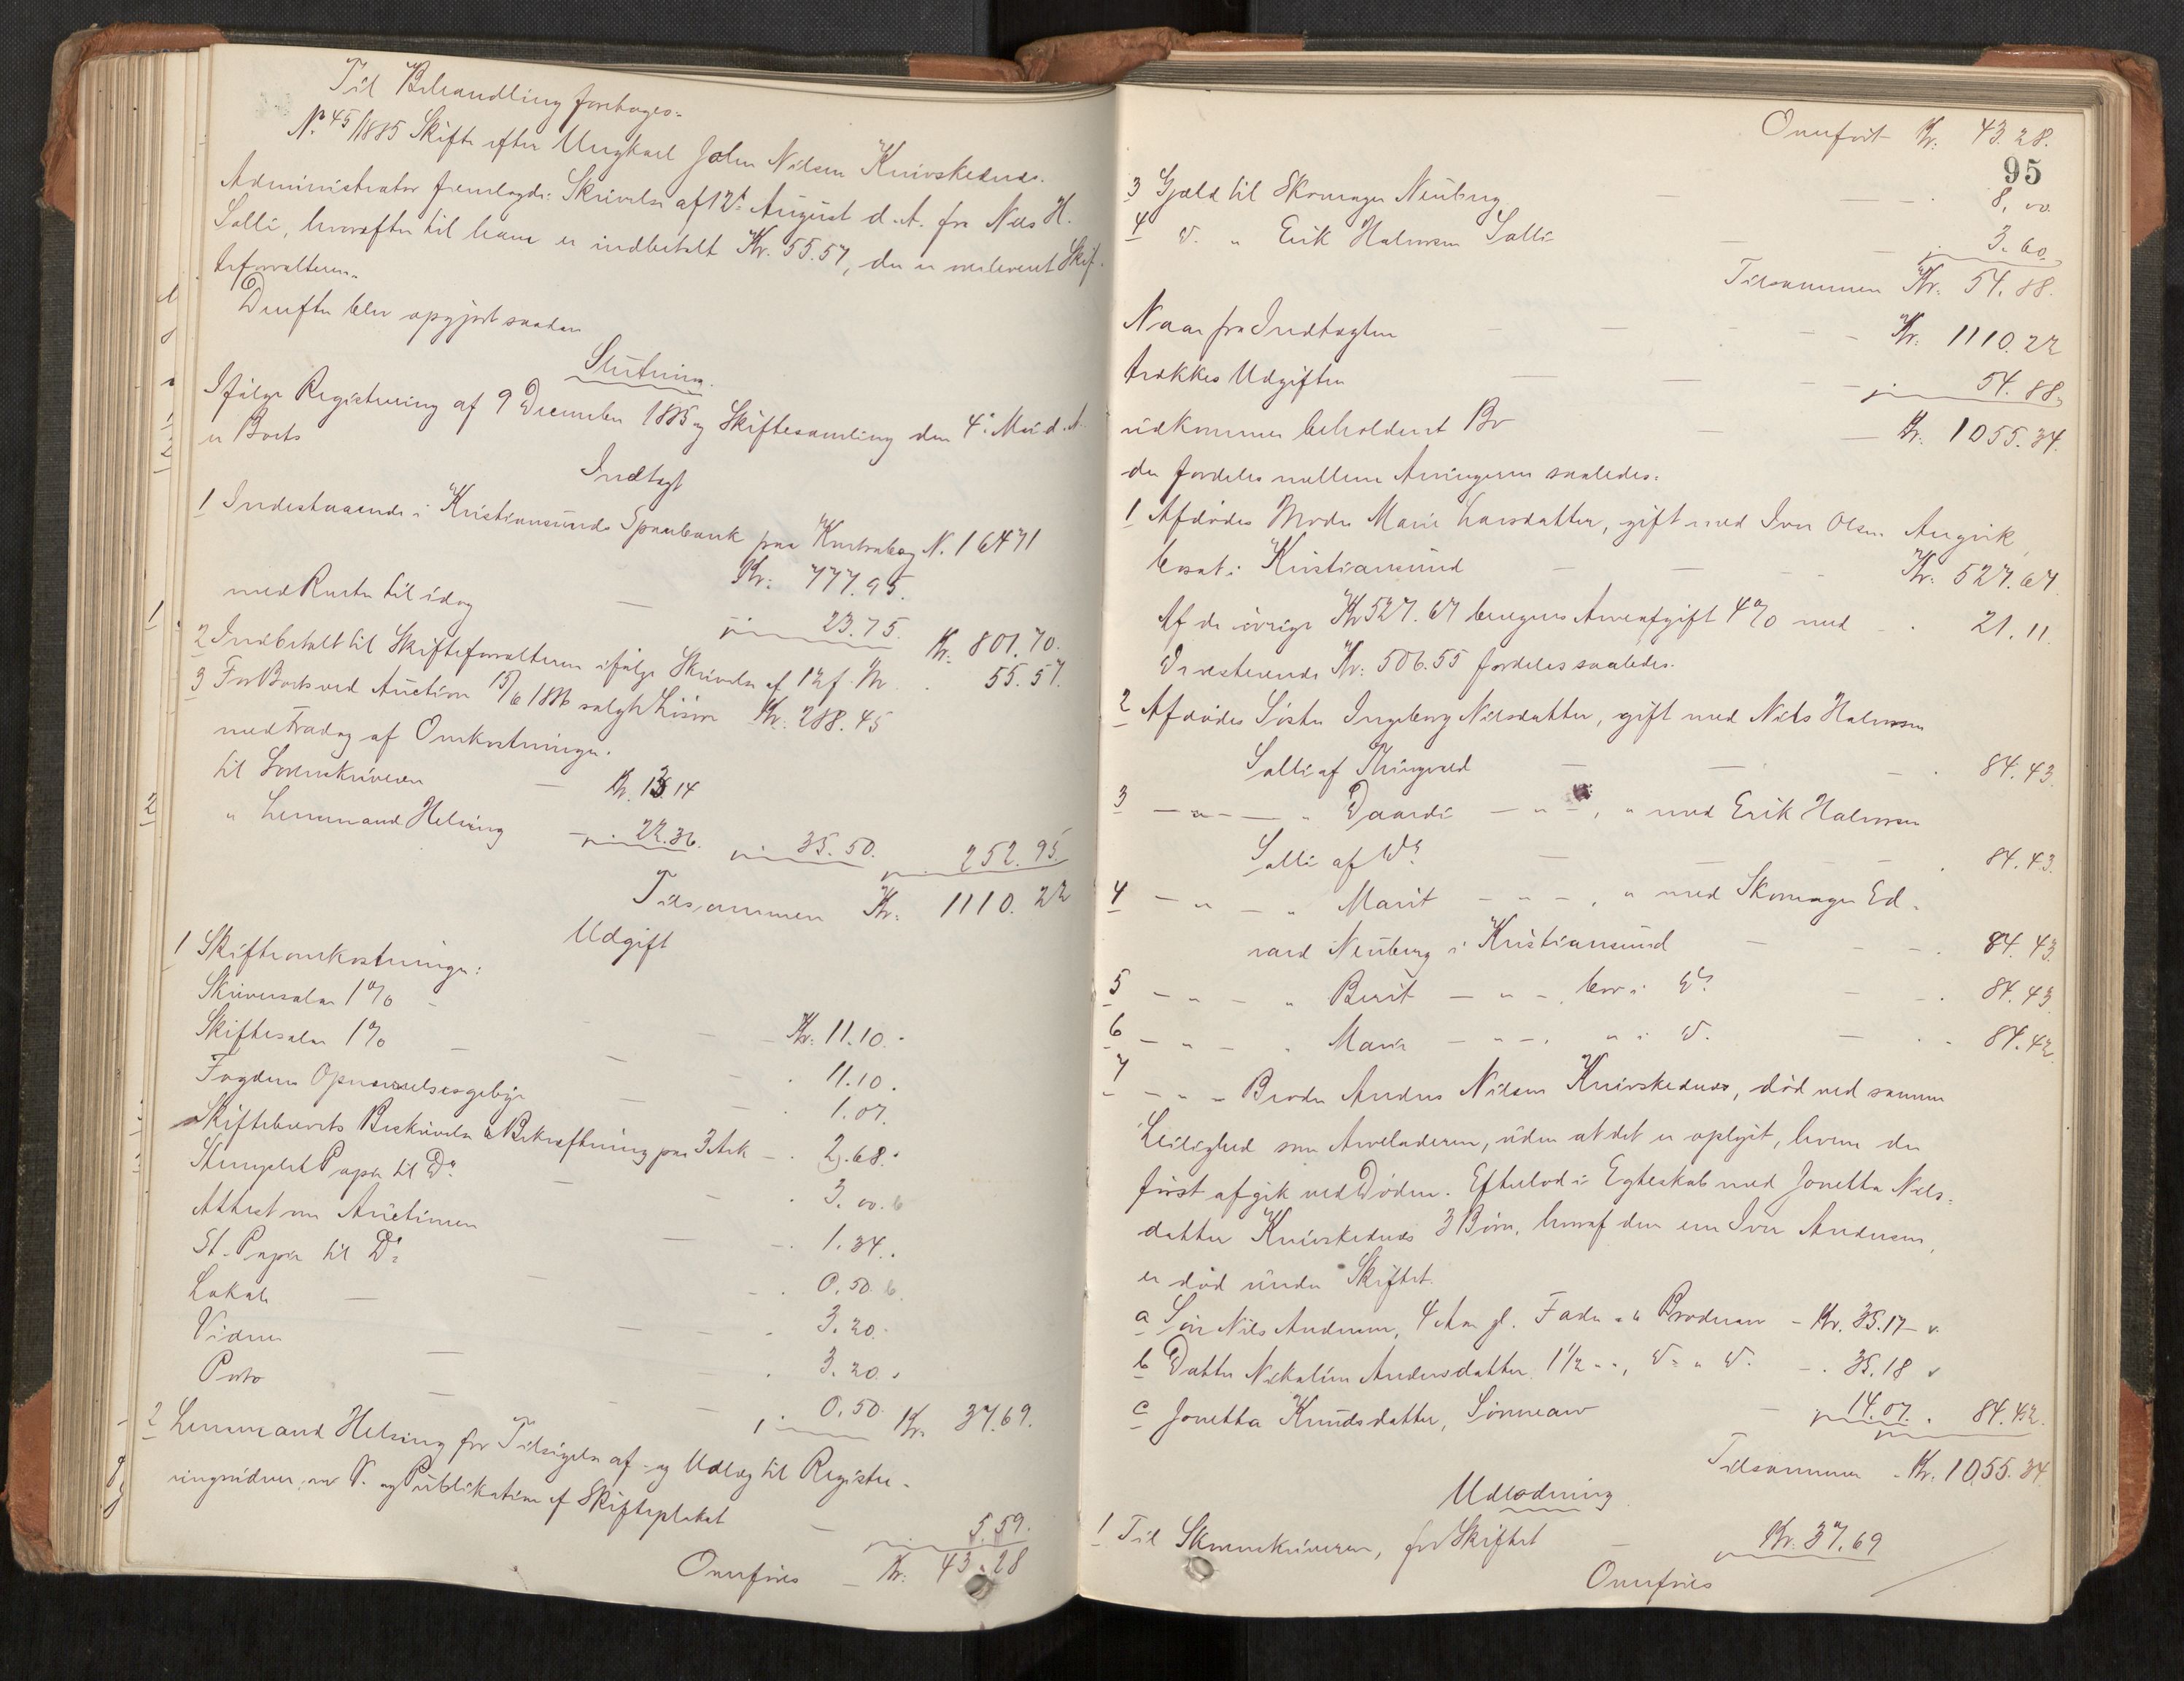 Til Behandling foretages:
No 45/1885 Skifte efter Ungkarl John Nilsen Knivskednes.
Administrator fremlagde: Skrivelse af 12te August d. A. fra Nils H.
Solli, hvorefter til ham er indbetalt Kr. 55.57, der er overleveret Skif-
teforvalteren.
Derefter blev opgjort saadan
Slutning.
Ifølge Registrering af 9 December 1885 og Skiftesamling den 4: Mai d. A.
er Boets
Indtægt
1 Indestaaende i Kristiansunds Sparebank paa Kontrabog N. 16471
Kr: 777.95.
med Renter til idag — 23.75. Kr. 801.70.
2 Indbetalt til Skifteforvalteren ifølge Skrivelse af 12 f. M. . 55.57.
3 For Boets ved Auction 15/6 1886 solgte Løsøre Kr. 288.45
med Fradag af Omkostninger.
til Sorenskriveren — Kr. 13.14
" Lensmand Helsing — 22.36. 35.50. 252.95.
Tilsammen Kr: 1110.22
Udgift
1 Skifteomkostninger:
Skriversalær 1% — Kr: 11.10.
Skiftesalær 1% — 11.10.
Fogdens Opnævnelsesgebyr — 1.07.
Skiftebrevets Beskrivelse & Bekræftning paa 3 Ark — 2.68.
Stemplet Papir til Do — 3.00.
Attest om Auctionen — 1.34.
St. Papir til Do — 0.50.
Lokale — 3.20.
Vidner — 3.20.
Porto — 0.50. Kr. 37.69.
2 Lensmand Helsing for Tilsigelse af og Udlæg til Registre-
ringsvidner og Publikation af Skifteplakat — 5.59.
Omføres — Kr: 43.28
Omført Kr: 43.28.
95
3 Gjæld til Skomager Neuberg — 8.00
4 D. " Erik Halvorsen Solli — 3.60
Tilsammen Kr. 54.88.
Naar fra Indtægten — Kr. 1110.22
trækkes Udgiften — 54.88.
udkommer beholdent Bo — Kr. 1055.34.
der fordeles mellem Arvingerne saaledes:
1 Afdødes Moder Marie Larsdatter, gift med Iver Olsen Angvik,
bosat i Kristiansund — Kr: 527.67
Af de øvrige Kr 527.67 beregnes Arveafgift 4% med — . 21.11.
De resterende Kr: 506.55 fordeles saaledes:
2 Afdødes Søster Ingeborg Nilsdatter, gift med Nils Halvorsen
Solli af Thingvold — 84.43.
3 — " — " Baardi — " — , " med Erik Halvorsen
Solli af Do — 84.43.
4 — " — " Marit — " — , " med Skomager Ed-
vard Neuberg i Kristiansund — 84.43.
5 — " — " Berit — " — , bor i Do — 84.43
6 — " — " Marie — " — , " i D. — 84.42.
7 — " — Broder Anders Nilsen Knivskednes, død ved samme
Leilighed som Arveladeren, uden at det er oplyst, hvem der
først afgik ved Døden. Efterlod i Egteskab med Jonetta Nils-
datter Knivskednes 3 Børn, hvoraf den ene Iver Andersen,
er død under Skiftet.
a Søn Nils Andersen, 4 Aar gl. Fader- & Broderarv — Kr. 35.17 —
b Datter Nikoline Andersdatter, 1½ " ", D. " D. — . 35.18
c Jonetta Knudsdatter, Sønnearv — 14.07. . 84.42.
Tilsammen . Kr. 1055.34
Udlodning
1 Til Sorenskriveren, for Skiftet — Kr. 37.69
Omføres